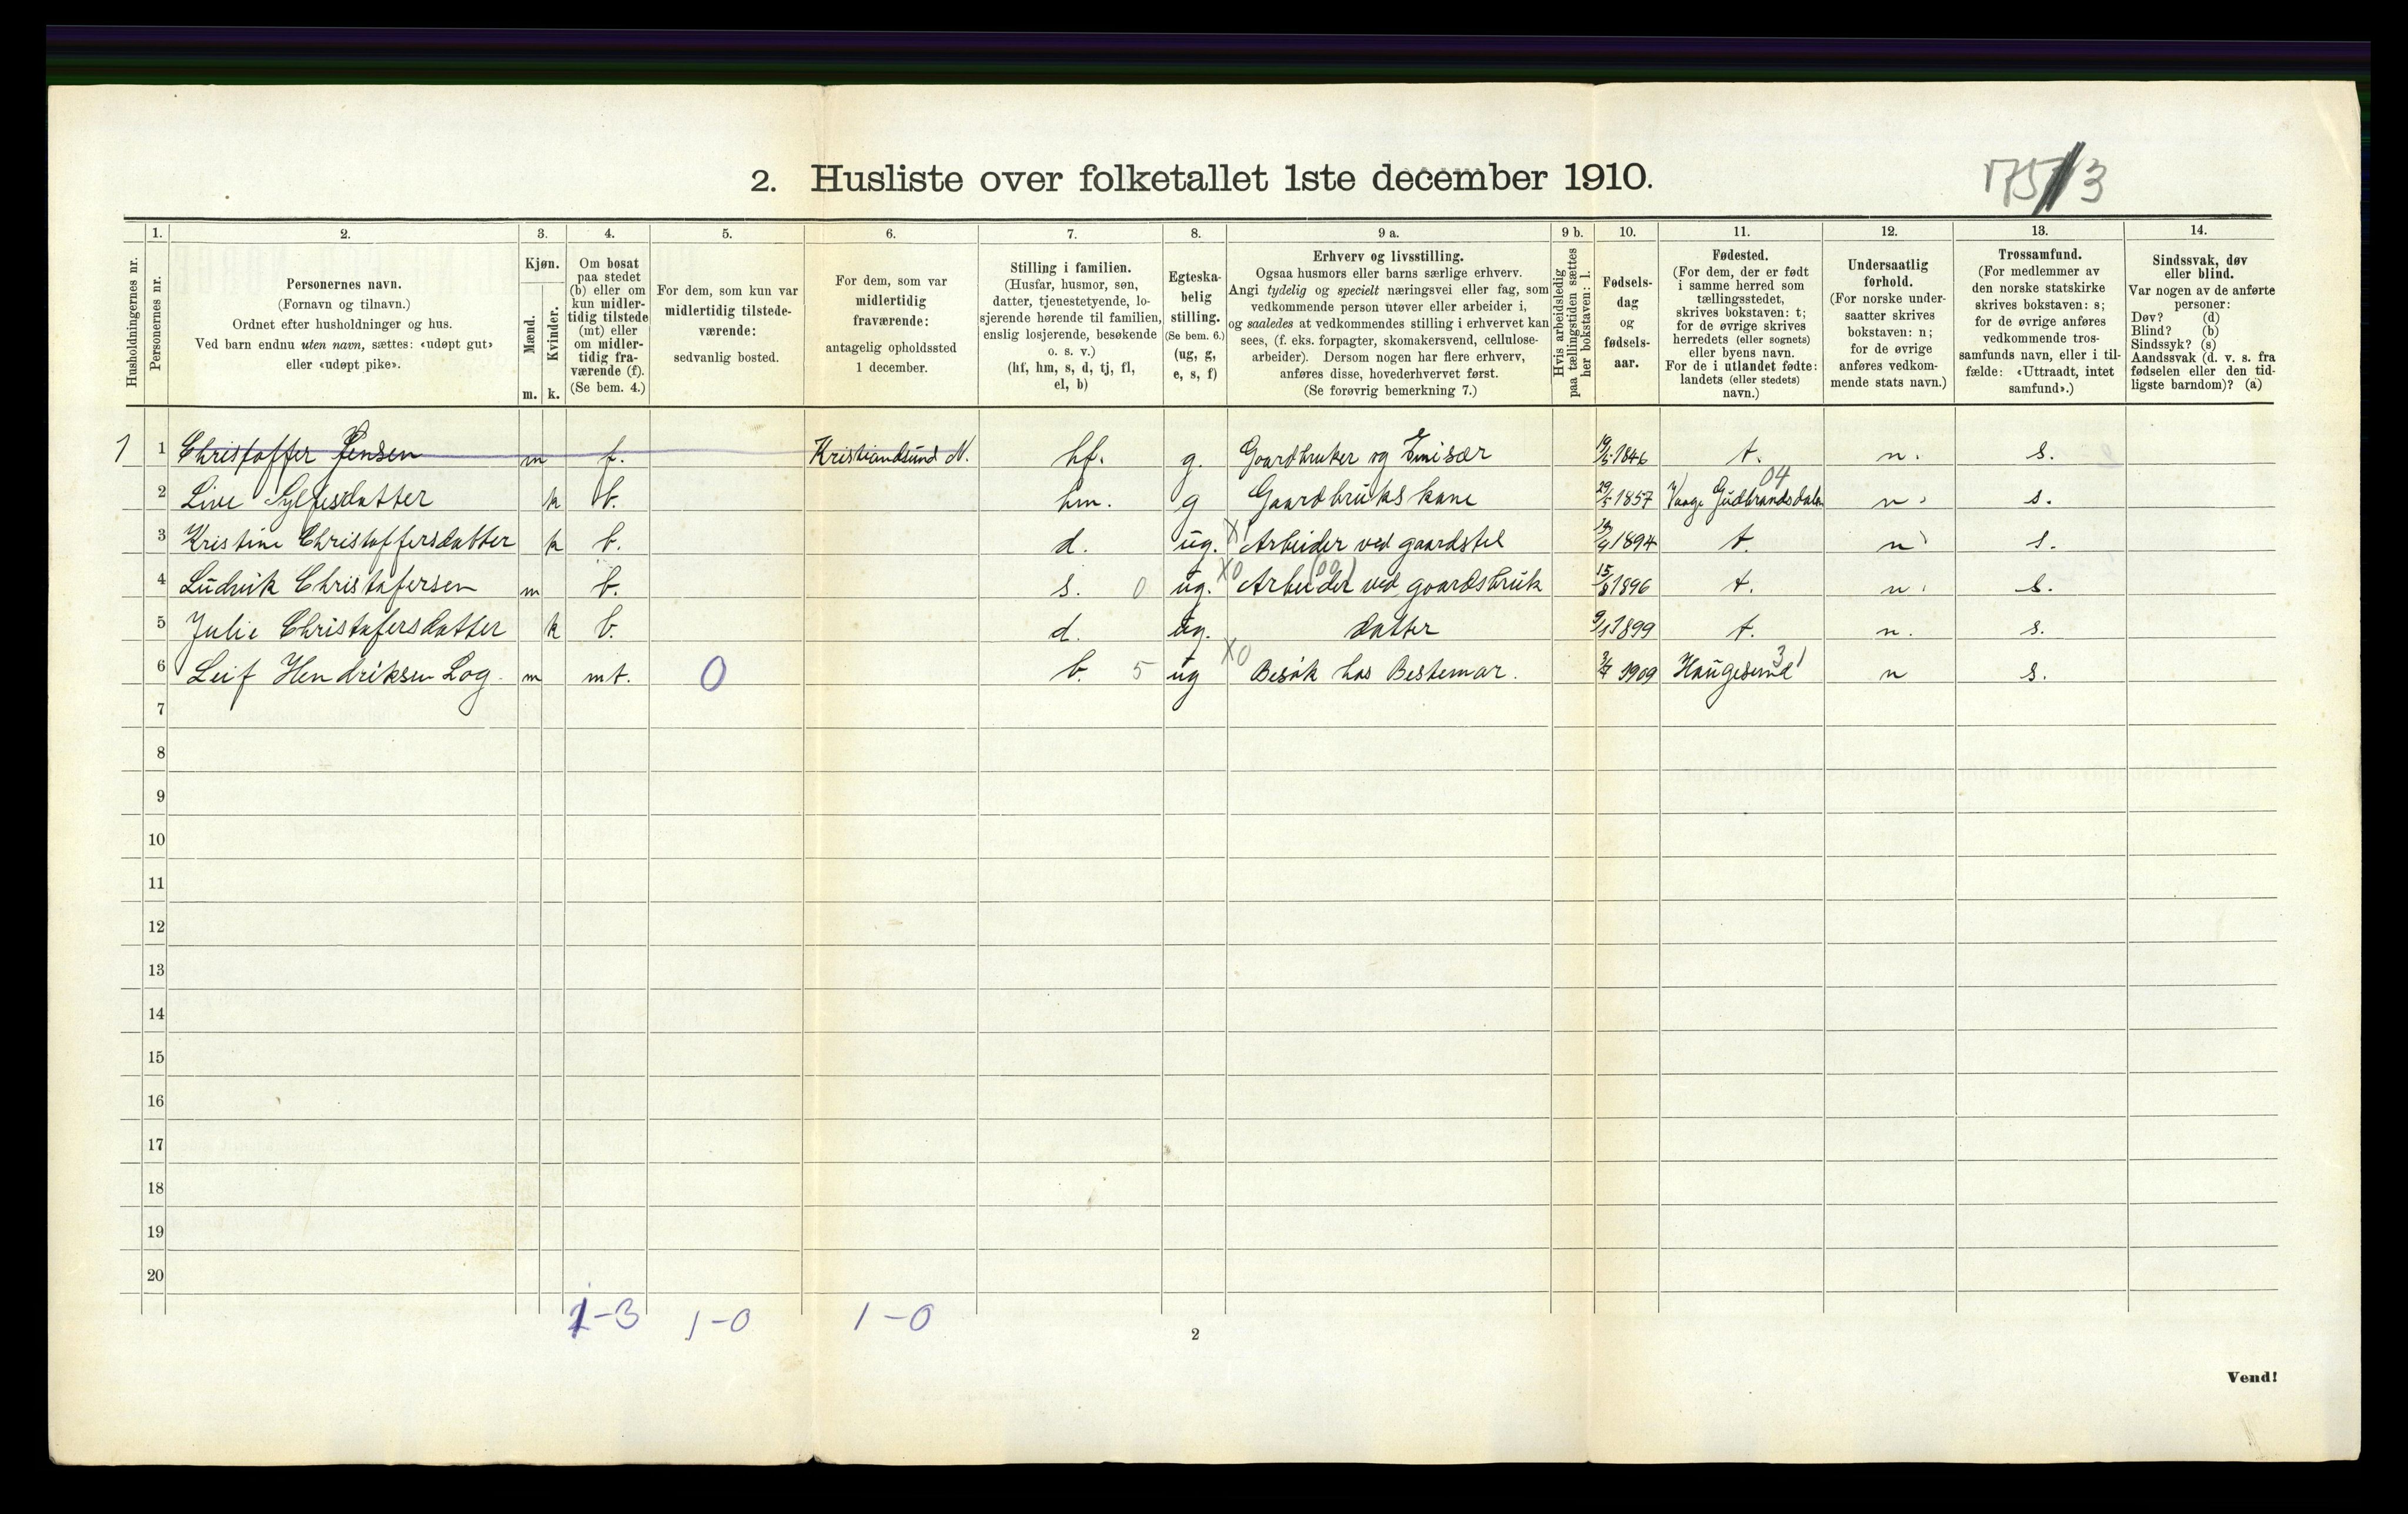 2. Husliste over folketallet 1ste december 1910.
Husholdningernes nr.
1.
Personernes nr.
2.
Personernes navn.
(Fornavn og tilnavn.)
Ordnet efter husholdninger og hus.
Ved barn endnu uten navn, sættes: «udøpt gut»
eller «udøpt pike».
3.
Kjøn.
Mænd.
Kvinder.
m. k.
4.
Om bosat
paa stedet
(b) eller om
kun midler-
tidig tilstede
(mt) eller
om midler-
tidig fra-
værende (f).
(Se bem. 4.)
5.
For dem, som kun var
midlertidig tilstede-
værende:
sedvanlig bosted.
6.
For dem, som var
midlertidig
fraværende:
antagelig opholdssted
1 december.
7.
Stilling i familien.
(Husfar, husmor, søn,
datter, tjenestetyende, lo-
sjerende hørende til familien,
enslig losjerende, besøkende
o. s. v.)
(hf, hm, s, d, tj, fl,
el, b)
8.
Egteska-
belig
stilling.
(Se bem. 6.)
(ug, g,
e, s, f)
9 a.
Erhverv og livsstilling.
Ogsaa husmors eller barns særlige erhverv.
Angi tydelig og specielt næringsvei eller fag, som
vedkommende person utøver eller arbeider i,
og saaledes at vedkommendes stilling i erhvervet kan
sees, (f. eks. forpagter, skomakersvend, cellulose-
arbeider). Dersom nogen har flere erhverv,
anføres disse, hovederhvervet først.
(Se forøvrig bemerkning 7.)
9 b.
Hvis arbeidsledig
paa tællingstiden sættes
her bokstaven: l.
10.
Fødsels-
dag
og
fødsels-
aar.
11.
Fødested.
(For dem, der er født
i samme herred som
tællingsstedet,
skrives bokstaven: t;
for de øvrige skrives
herredets (eller sognets)
eller byens navn.
For de i utlandet fødte:
landets (eller stedets)
navn.)
12.
Undersaatlig
forhold.
(For norske under-
saatter skrives
bokstaven: n;
for de øvrige
anføres vedkom-
mende stats navn.)
13.
Trossamfund.
(For medlemmer av
den norske statskirke
skrives bokstaven: s;
for de øvrige anføres
vedkommende tros-
samfunds navn, eller i til-
fælde: «Uttraadt, intet
samfund».)
14.
Sindssvak, døv
eller blind.
Var nogen av de anførte
personer:
Døv? (d)
Blind? (b)
Sindssyk? (s)
Aandssvak (d. v. s. fra
fødselen eller den tid-
ligste barndom)? (a)
1 1 Christoffer Jensen m f. Kristiandsund N. hf. g. Gaardbruker og Emisær 19/5 1846 t. n. s.
2 Live Sylfesdatter k b. hm. g Gaardbrukskane 29/5 1857 Vaage Gudbrandsdalen 04 n. s.
3 Kristine Christoffersdatter k b. d. ug. X1 Arbeider ved gaardstel 1894 t. n s.
4 Ludvik Christofersen m b. s. 0 ug. X0 Arbeider ved gaardsbruk 15/8 1896 t. n. s.
5 Julie Christofersdatter k b. d. ug. datter 9/1 1899 t. n. s.
6 Leif Hendriksen Log m mt. 0 b. 5 ug X0 Besøk hos Bestemor. 1909 Haugesund 31 n s.
7
8
9
10
11
12
13
14
15
16
17
18
19
20
1-3 1-0 1-0
2
Vend!